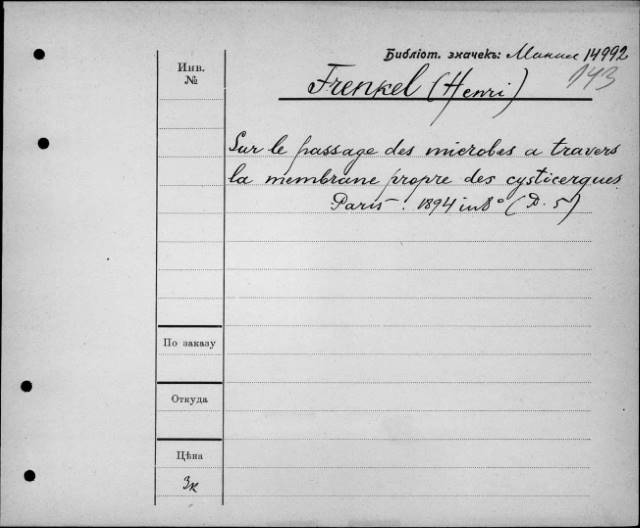 Библіот. значекъ: 14992
143
Инв.
№
Frenkel (Henri)
Sur le passage des microbes a travers
la membrane propre des cysticerques.
Paris. 1894 in 8° (D. 5)
По заказу
Откуда
Цѣна
3к